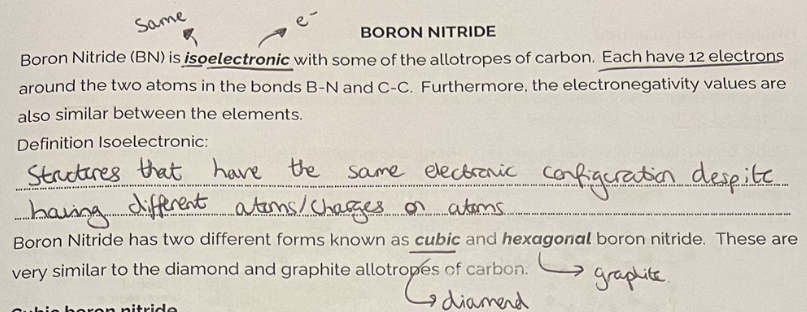 same
e⁻
BORON NITRIDE
Boron Nitride (BN) is isoelectronic with some of the allotropes of carbon. Each have 12 electrons
around the two atoms in the bonds B-N and C-C. Furthermore, the electronegativity values are
also similar between the elements.
Definition Isoelectronic:
Structures that have the same electronic configuration despite
having different atoms/charges on atoms
Boron Nitride has two different forms known as cubic and hexagonal boron nitride. These are
very similar to the diamond and graphite allotropes of carbon.
graphite.
diamond
Cubic boron nitride